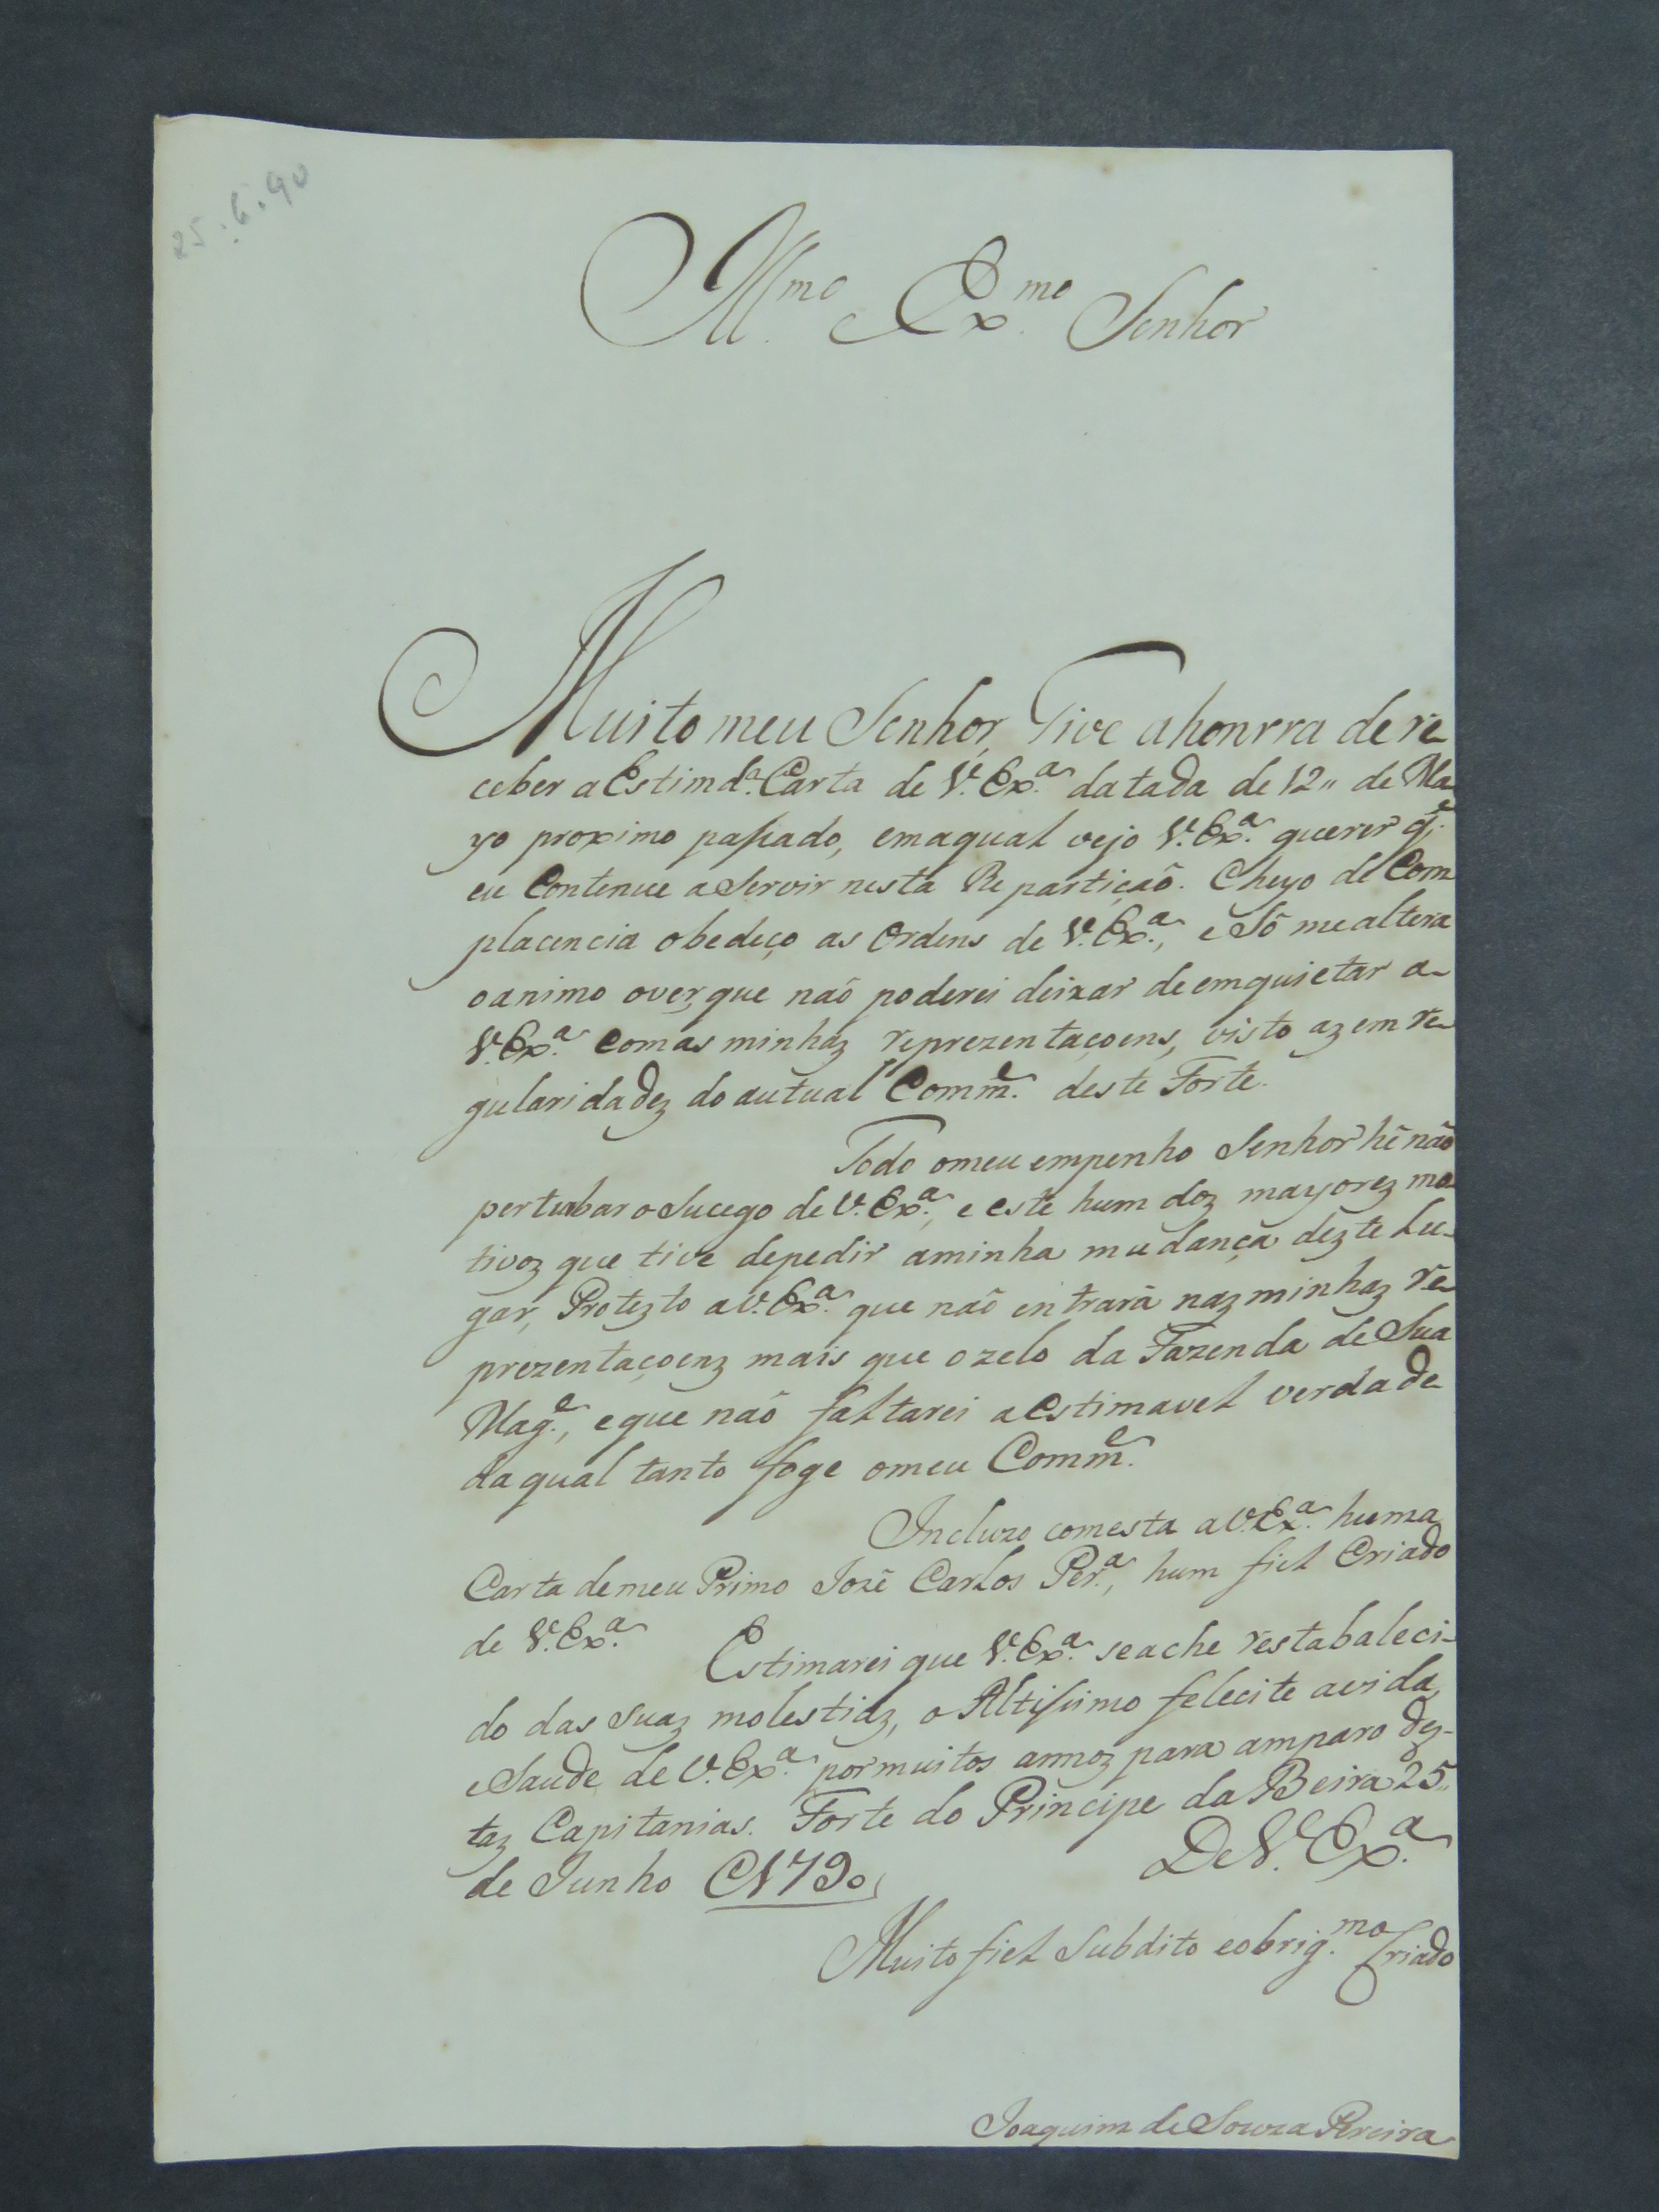 25.6.90
Ill.mo e Ex.mo Senhor
Muito meu Senhor, Tive ahonrra de re
ceber a Estimd.a Carta de V.Ex.a datada de 12,, de Ma
yo proximo passado, emaqual vejo V.Ex.a querer q.e
eu Contenue a Servir nesta Repartiçaõ. Cheyo de Com
placencia obedeço as Ordens de V.Ex.a, e Sô mealtera
oanimo over, que naõ poderei deixar deemquietar a
V.Ex.a Comas minhaz reprezentaçoens, visto azemre
gularidadez do autual Comm.e deste Forte.
Todo omeu empenho Senhor hê naõ
pertubar o Sucego de V.Ex.a, e este hum doz mayorez mo
tivoz que tive depedir aminha mudança dezte Lu-
gar, Protezto aV.Ex.a que naõ entrarâ naz minhaz re
prezentaçoenz mais que ozelo da Fazenda de Sua
Mag.e, eque naõ faltarei a Estimavel verdade
daqual tanto foge omeu Comm.e
Incluzo comesta aV.Ex.a huma
Carta demeu Primo Jozê Carlos Per.a, hum fiel Criado
de V.Ex.a
Estimarei que V.Ex.a seache restabaleci-
do das suaz molestiaz, o Altissimo felecite avida,
eSaude de V.Ex.a pormuitos annoz para amparo dez-
taz Capitanias. Forte do Principe da Beira 25,,
de Junho 1790
DeV.Ex.a
Muito fiel Subdito eobrig.mo Criado
Joaquim de Souza Pereira